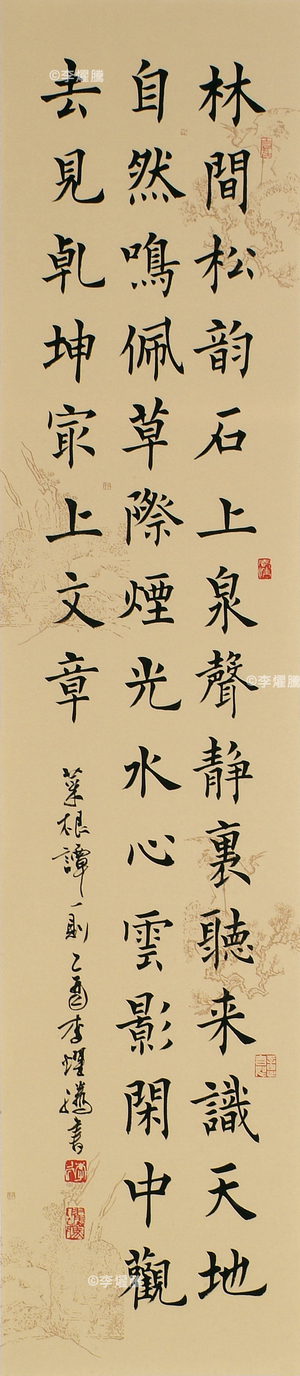 林間松韵石上泉聲静裏聽来識天地
自然鳴佩草際煙光水心雲影閑中觀
去見乹坤冣上文章
菜根譚一則乙酉李燿騰書
©李燿騰
©李燿騰
©李燿騰